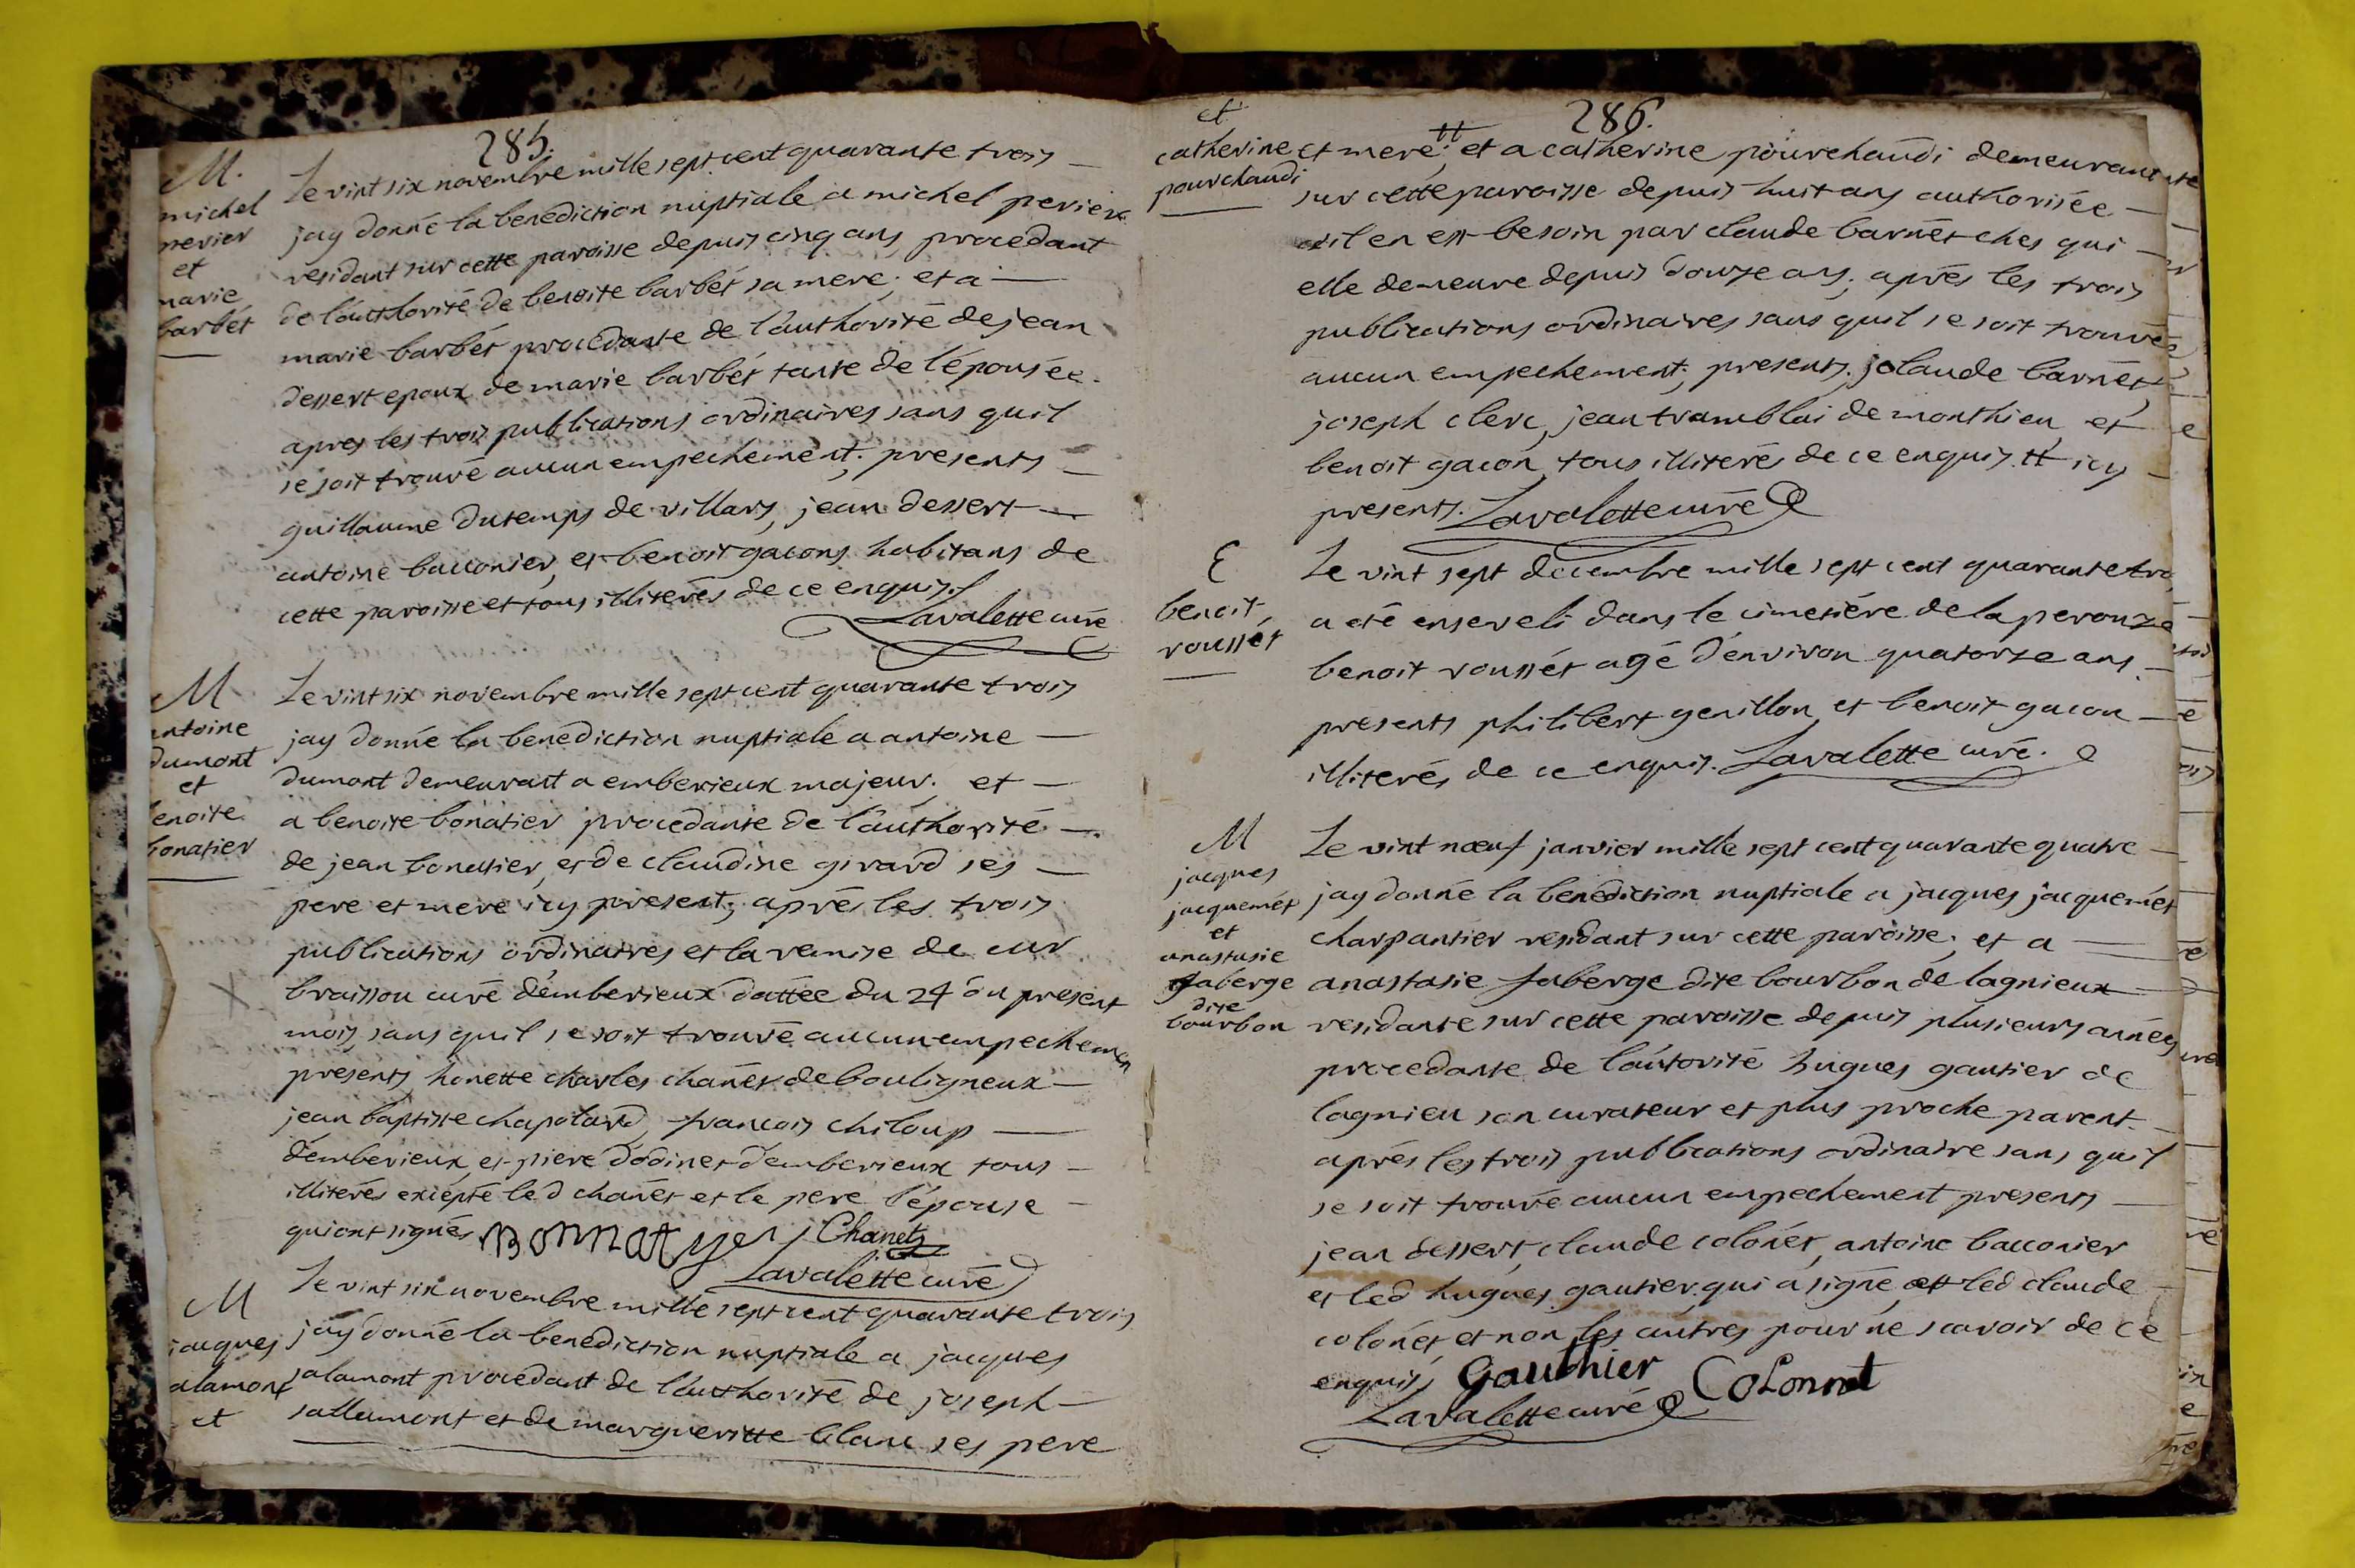 285.
M.
michel
perier
et
marie
barbét
Le vint six novembre mille sept cent quarante trois
jay donné la benediction nuptiale a michel perier
residant sur cette paroisse depuis cinq ans, procedant
de l'authorité de benoite barbét sa mere; et a
marie barbét procedante de l'authorité de jean
dessert epoux de marie barbét tante de l'épousée.
apres les trois publications ordinaires sans quil
se soit trouvé aucun empechement; presents
guillaume dutemps de villars, jean dessert
antoine bacconier, et benoit gacons habitans de
cette paroisse et tous illiterés de ce enquis.
Lavalette curé
M
antoine
dumont
et
benoite
bonatier
Le vint six novembre mille sept cent quarante trois
jay donné la benediction nuptiale a antoine
dumont demeurant a emberieux majeur; et
a benoite bonatier procedante de l'authorité
de jean bonatier, et de claudine girard ses
pere et mere icy present; aprés les trois
publications ordinaires et la remise de mr
braisson curé d'emberieux dattée du 24 du present
mois, sans quil se soit trouvé aucun empechemen
presents, honette charles chanét de bouligneux
jean baptiste chapolard, francois chiloup
d'emberieux, et piere dodinet d'emberieux tous
illiterés excépté led chanét et le pere l'épouse
qui ont signés Bonnatyer Chanet
Lavalette curé
M
jacques
alamont
et
Le vint six novembre mille sept cent quarante trois
jay donné la benediction nuptiale a jacques
salamont procedant de l'authorité de joseph
sallamont et de margueritte blanc ses pere
286.
et
catherine
pourchaudi
et mere; # et a catherine pourchaudi demeurante
sur cette paroisse depuis huit ans authorisée
sil en est besoin par claude barnét ches qui
elle demeure depuis douze ans; aprés les trois
publications ordinaires sans quil se soit trouvée
aucun empechement; presents; claude barnét,
joseph clerc, jean tramblai de monthieu, et
benoit gacon, tous illiterés de ce enquis. # icy
presents. Lavalette curé
E
benoit
roussét
Le vint sept decembre mille sept cent quarante tro
a eté enseveli dans le cimetiére de la perouze
benoit roussét agé d'environ quatorze ans.
presents philibert genillon, et benoit gacon
illiterés de ce enquis. Lavalette curé.
M
jacques
jacquemét
et
anastasie
faberge
dite
bourbon
Le vint nœuf janvier mille sept cent quarante quatre
jay donné la benediction nuptiale a jacques jacquemét
charpantier residant sur cette paroisse; et a
anastasie faberge dite bourbon de lagnieux
residante sur cette paroisse depuis plusieurs années
procedante de l'autorité hugues gautier de
lagnieu son curateur et plus proche parent.
aprés les trois publications ordinaire sans quil
se soit trouvé aucun empechement presents
jean dessert, claude colonét, antoine bacconier
et led hugues gautier qui a signé et led claude
colonét, et non les autres pour ne scavoir de ce
enquis, Gauthier Colonnet
Lavalette curé